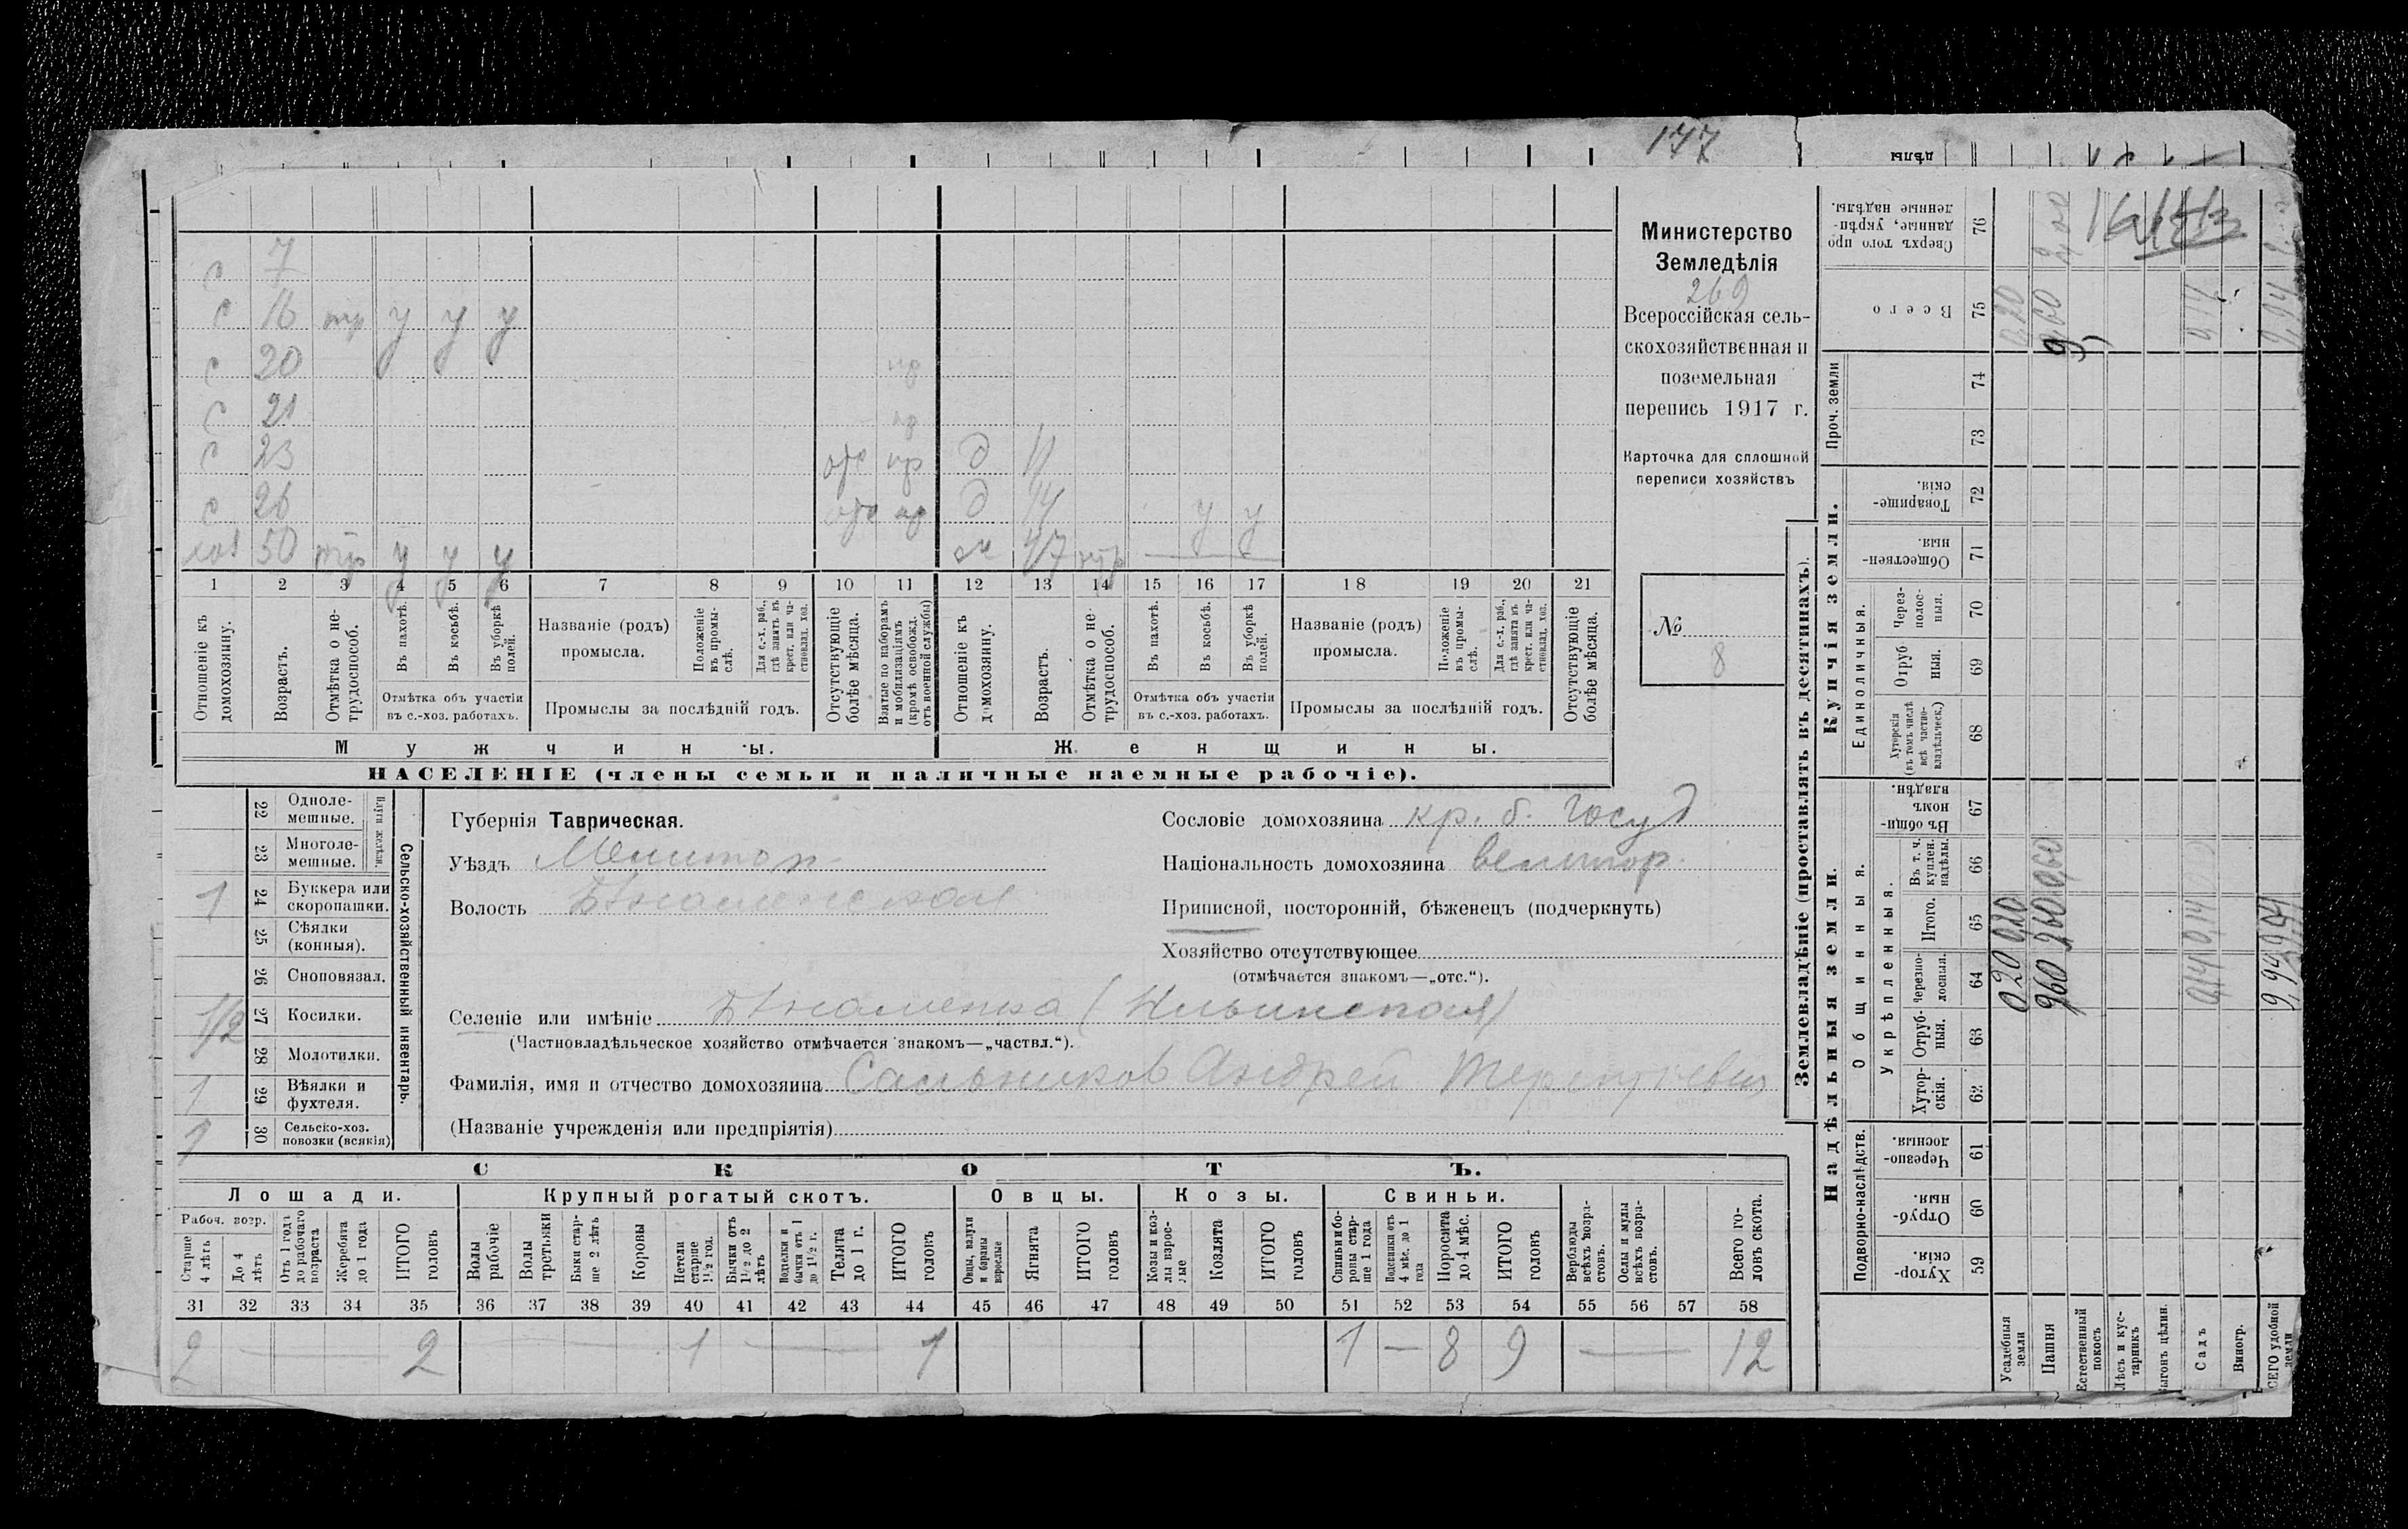 177
дѣлы
с 7
с 16 тр у у у
с 20 пр
с 21 пр
с 23 отс пр д 11
с 26 отс пр д 14 у у
хоз 50 тр у у у ж 47 тр —
1 2 3 4 5 6 7 8 9 10 11 12 13 14 15 16 17 18 19 20 21
Отношеніе къ домохозяину.
Возрастъ.
Отмѣтка о не-трудоспособ.
Въ пахотѣ.
Въ косьбѣ.
Въ уборкѣ полей.
Отмѣтка объ участіи
въ с.-хоз. работахъ.
Названіе (родъ)
промысла.
Положеніе въ промы-слѣ.
Для с.-х. раб., гдѣ занятъ въ крест. или ча-стновлад. хоз.
Промыслы за послѣдній годъ.
Отсутствующіе болѣе мѣсяца.
Взятые по наборамъ и мобилизаціямъ (кромѣ освобожд. отъ военной службы)
Отношеніе къ домохозяину.
Возрастъ.
Отмѣтка о не-трудоспособ.
Въ пахотѣ.
Въ косьбѣ.
Въ уборкѣ полей.
Отмѣтка объ участіи
въ с.-хоз. работахъ.
Названіе (родъ)
промысла.
Положеніе въ промы-слѣ.
Для с.-х. раб., гдѣ занята въ крест. или ча-стновлад. хоз.
Промыслы за послѣдній годъ.
Отсутствующіе болѣе мѣсяца.
Мужчины.
Женщины.
НАСЕЛЕНІЕ (члены семьи и наличные наемные рабочіе).
Министерство
Земледѣлія
269
Всероссійская сель-
скохозяйственная и
поземельная
перепись 1917 г.
Карточка для сплошной
переписи хозяйствъ
№
8
Сельско-хозяйственный инвентарь.
Плуги желѣзн.
22 Одноле-мешные.
23 Многоле-мешные.
1 24 Буккера или скоропашки.
25 Сѣялки (конныя).
26 Сноповязал.
1/2 27 Косилки.
28 Молотилки.
1 29 Вѣялки и фухтеля.
1 30 Сельско-хоз. повозки (всякія)
Губернія Таврическая.
Уѣздъ Мелитоп
Волость Б Знаменская
Сословіе домохозяина кр. б. госуд
Національность домохозяина великор.
Приписной, посторонній, бѣженецъ (подчеркнуть)
Хозяйство отсутствующее
(отмѣчается знакомъ—„отс.“).
Селеніе или имѣніе Б Знаменка (Ильинская)
(Частновладѣльческое хозяйство отмѣчается знакомъ—„частвл.“).
Фамилія, имя и отчество домохозяина Сальников Андрей
(Названіе учрежденія или предпріятія)
СКОТЪ.
Лошади.
Крупный рогатый скотъ.
Овцы.
Козы.
Свиньи.
Рабоч. возр.
Старше 4 лѣтъ
До 4 лѣтъ
Отъ 1 года до рабочаго возраста
Жеребята до 1 года
ИТОГО головъ
Волы рабочіе
Волы третьяки
Быки стар-ше 2 лѣтъ
Коровы
Нетели старше 1½ год.
Бычки отъ 1½ до 2 лѣтъ
Подтелки и бычки отъ 1 до 1½ г.
Телята до 1 г.
ИТОГО головъ
Овцы, валухи и бараны взрослые
Ягнята
ИТОГО головъ
Козы и коз-лы взрос-лые
Козлята
ИТОГО головъ
Свиньи и бо-ровы стар-ше 1 года
Подсвинки отъ 4 мѣс. до 1 года
Поросята до 4 мѣс.
ИТОГО головъ
Верблюды всѣхъ возра-стовъ.
Ослы и мулы всѣхъ возра-стовъ.
Всего го-ловъ скота.
31 32 33 34 35 36 37 38 39 40 41 42 43 44 45 46 47 48 49 50 51 52 53 54 55 56 57 58
2 — 2 — 1 — 1 1 — 8 9 — 12
Землевладѣніе (проставлять въ десятинахъ).
Надѣльныя земли.
Купчія земли.
Проч. земли
Подворно-наслѣдств.
Общинныя.
Укрѣпленныя.
Единоличныя.
Хутор-скія. 59
Отруб-ныя. 60
Черезпо-лосныя. 61
Хутор-скія. 62
Отруб-ныя. 63
Черезпо-лосныя. 64
Итого. 65
Въ т. ч. куплен. надѣлы. 66
Въ общи-номъ владѣн. 67
Хуторскія (въ томъ числѣ всѣ частно-владѣльческ.) 68
Отруб ныя. 69
Через-полос-ныя. 70
Обществен-ныя. 71
Товарище-скія. 72
73
74
Всего 75
Сверхъ того про данные, укрѣп-ленные надѣлы. 76
Усадебныя земли 0,20 0,20 0,20
Пашня 9,60 9,60 0,60 9,60 2,00
Естественный покосъ
Лѣсъ и кус-тарникъ
Выгонъ цѣлин.
Садъ 0,14 0,14 0,14
Виногр.
ВСЕГО удобной земли 9,94 9,94 9,94